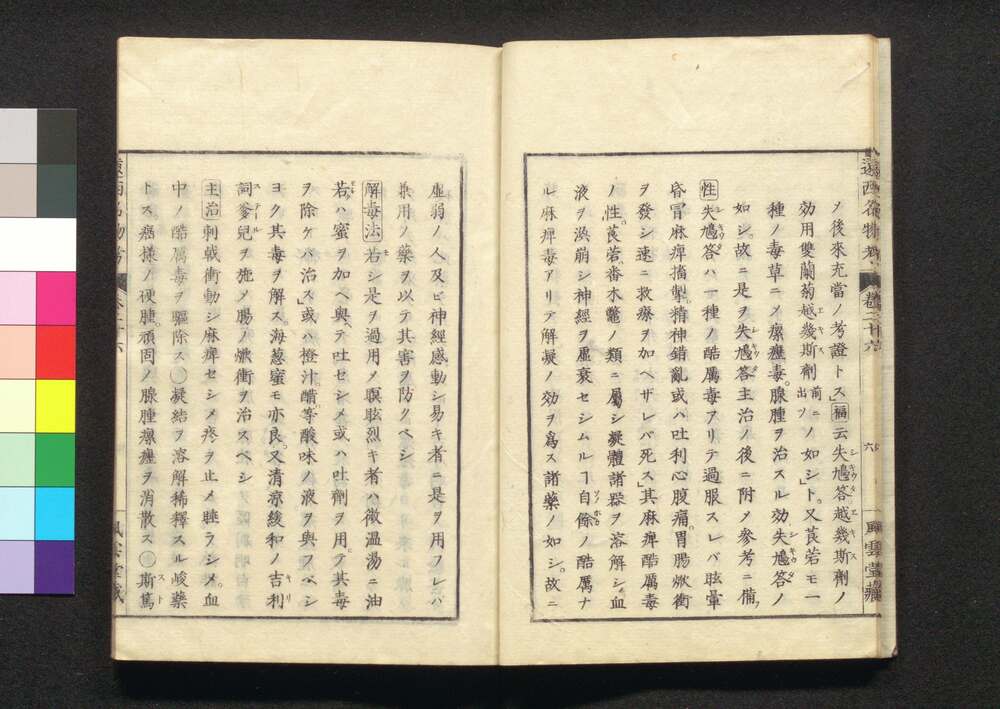 遠西名物考
卷三十六
六
風雲堂藏
ノ後來充當ノ考證トス」補云失鳩答越幾斯劑ノ
効用雙蘭菊越幾斯劑前ニ出ツノ如シト。又莨菪モ一
種ノ毒草ニメ瘰癧毒。腺腫ヲ治スル効失鳩答ノ
如シ。故ニ是ヲ失鳩答主治ノ後ニ附メ參考ニ備フ
性失鳩答ハ一種ノ酷厲毒アリテ過服スレバ眩暈
昏冒麻痺搐掣。精神錯亂或ハ吐利心腹痛。胃腸焮衝
ヲ發シ速ニ救療ヲ加ヘザレバ死ス」其麻痺酷厲毒
ノ性。莨菪。番木鼈ノ類ニ屬シ凝體諸器ヲ溶解シ。血
液ヲ渙崩シ神經ヲ虛衰セシムルヿ自餘ノ酷厲ナ
ル麻痺毒アリテ解凝ノ効ヲ爲ス諸藥ノ如シ。故ニ
虛弱ノ人及ビ神經感動シ易キ者ニ是ヲ用フレハ
兼用ノ藥ヲ以テ其害ヲ防クベシ
解毒法若シ是ヲ過用メ瞑眩烈キ者ハ微温湯ニ油
若ハ蜜ヲ加ヘ與ヘテ吐セシメ或ハ吐劑ヲ用テ其毒
ヲ除ケバ治ス。或ハ橙汁醋等酸味ノ液ヲ與フベシ
ヨク其毒ヲ解ス。海葱蜜モ亦良。又清凉緩和ノ吉利
詞爹兒ヲ施メ腸ノ焮衝ヲ治スベシ
主治刺戟衝動シ麻痺セシメ疼ヲ止メ睡ラシメ。血
中ノ酷厲毒ヲ驅除ス○凝結ヲ溶解稀釋スル峻藥
トス癌樣ノ硬腫。頑固ノ腺腫瘰癧ヲ消散ス○斯篤